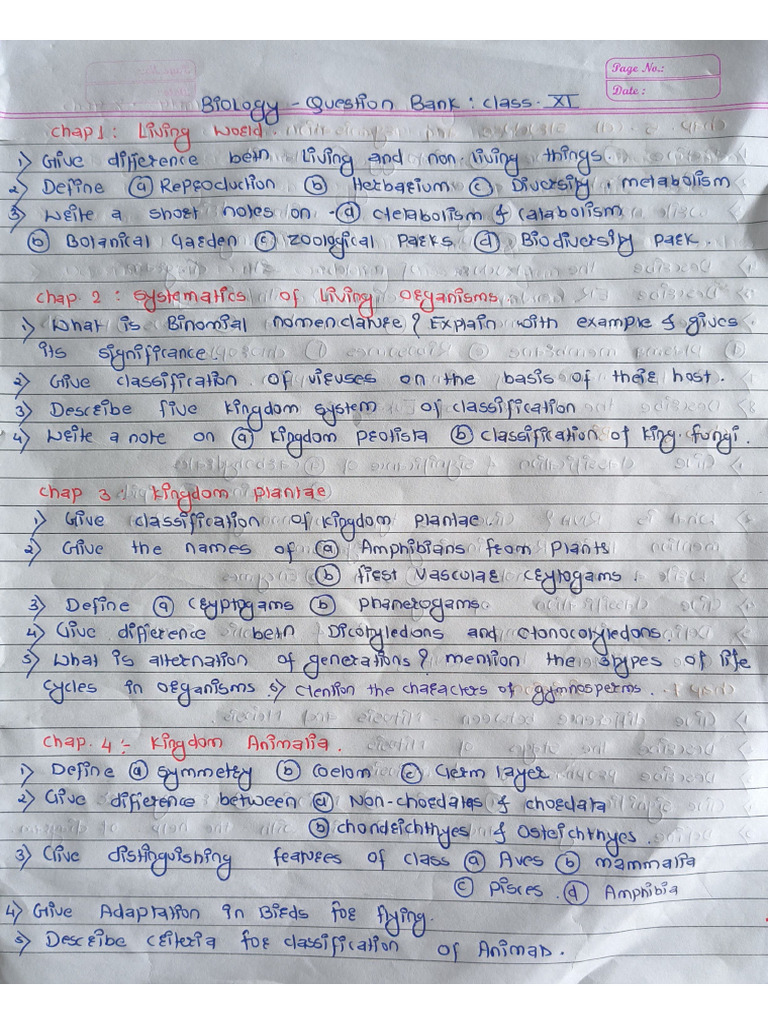 Page No.:
Date:
Biology - Question Bank: class. XI
Chap 1: Living World.
1) Give difference betn Living and non-living things.
2) Define (a) Reproduction (b) Herbarium (c) Diversity, metabolism
3) Write a short notes on - (a) Metabolism & Catabolism
(b) Botanical Garden (c) Zoological Parks (d) Biodiversity Park.
Chap. 2: Systematics of Living Organisms.
1) What is Binomial nomenclature? Explain with example & gives
its significance
2) Give classification of viruses on the basis of their host.
3) Describe five kingdom system of classification
4) Write a note on (a) Kingdom Protista (b) Classification of King. fungi.
Chap 3 Kingdom Plantae
1) Give classification of Kingdom Plantae
2) Give the names of (a) Amphibians from Plants
(b) first Vascular cryptogams
3) Define (a) Cryptogams (b) Phanerogams
4) Give difference betn Dicotyledons and Monocotyledons.
5) What is alternation of generations? mention the 3 types of life
cycles in organisms 6) Mention the characters of gymnosperms.
Chap. 4:- Kingdom Animalia.
1) Define (a) Symmetry (b) Coelom (c) Germ layer
2) Give difference between (a) Non-chordates & chordata
(b) Chondrichthyes & Osteichthyes.
3) Give distinguishing features of class (a) Aves (b) mammalia
(c) Pisces. (d) Amphibia
4) Give Adaptation in Birds for flying.
5) Describe criteria for classification of Animals.